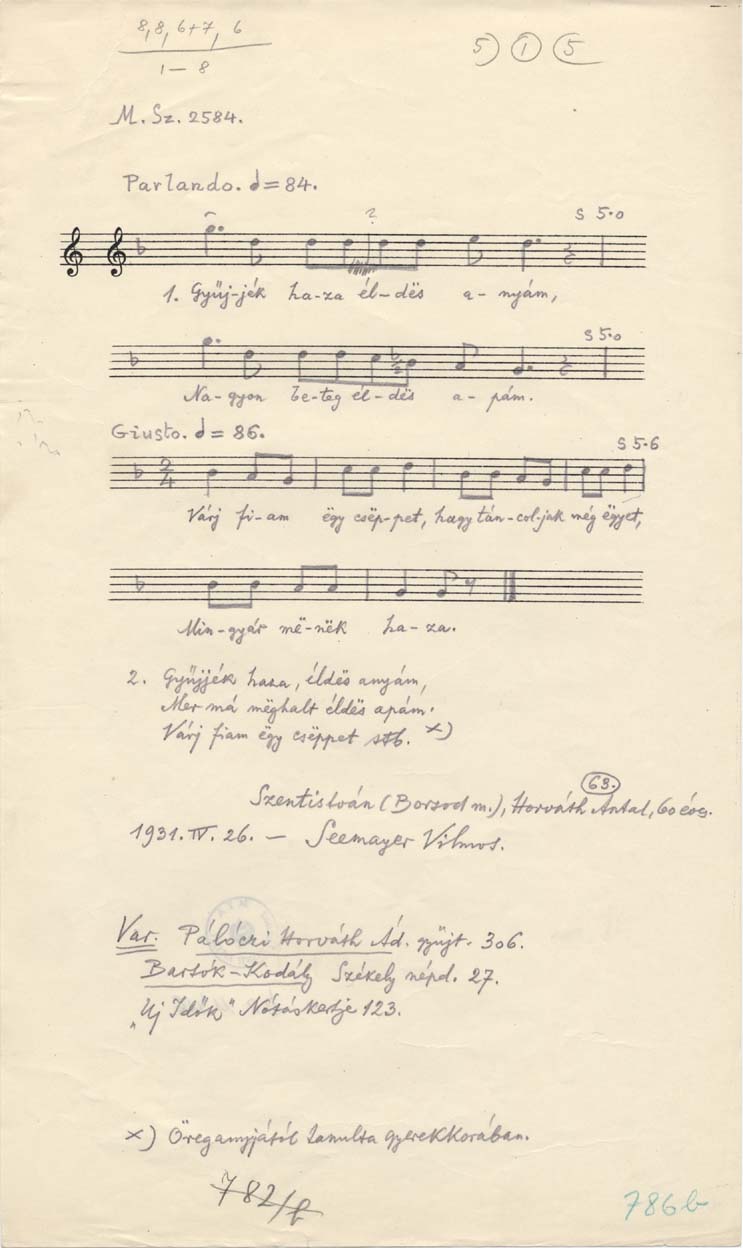 8, 8, 6+7, 6
1–8
5) (1) (5
M. Sz. 2584.
Parlando. = 84.
? S 5·0
1. Gyüj-jék ha-za él-dës a-nyám,
S 5·0
Na-gyon be-teg él-dës a-pám.
Giusto. = 86.
S 5·6
2 4
Várj fi-am ëgy csëp-pet, hagy tán-col-jak még ëgyet,
Min-gyár më-nëk ha-za.
2. Gyüjjék haza, éldës anyám,
Mer má mëghalt éldës apám.
Várj fiam ëgy csëppet stb. x)
63.
Szentistván (Borsod m.), Horváth Antal, 60 éves.
1931. IV. 26. – Seemayer Vilmos.
Var. Pálóczi Horváth Ád. gyüjt. 306.
Bartók-Kodály Székely népd. 27.
„Uj Idők" Nótáskertje 123.
x) Öreganyjától tanulta gyerekkorában.
782/b
786b